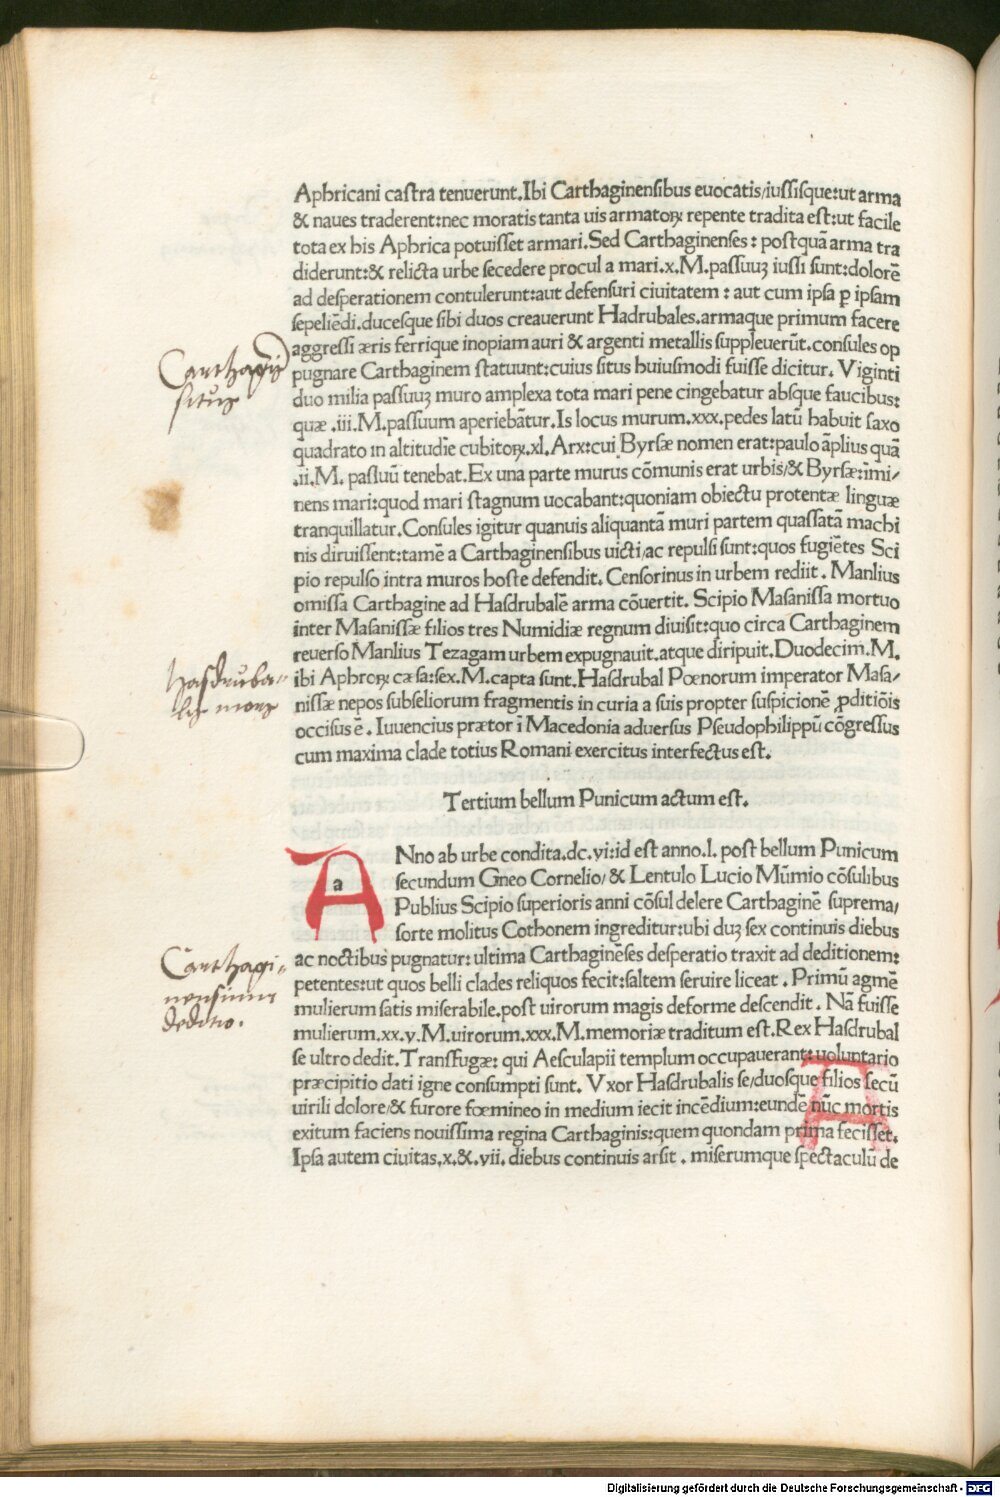 Aphricani castra tenuerunt.Ibi Carthaginensibus euocatis/iussisque:ut arma
& naues traderent:nec moratis tanta uis armatoꝝ repente tradita est:ut facile
tota ex his Aphrica potuisset armari.Sed Carthaginenses: postquā arma tra
diderunt:& relicta urbe secedere procul a mari.x.M.passuuꝫ iussi sunt:dolorē
ad desperationem contulerunt:aut defensuri ciuitatem: aut cum ipsa ꝑ ipsam
sepeliēdi.ducesque sibi duos creauerunt Hadrubales.armaque primum facere
aggressi æris ferrique inopiam auri & argenti metallis suppleuerūt.consules op
pugnare Carthaginem statuunt:cuius situs huiusmodi fuisse dicitur. Viginti
duo milia passuuꝫ muro amplexa tota mari pene cingebatur absque faucibus:
quæ .iii.M.passuum aperiebātur.Is locus murum.xxx.pedes latū habuit saxo
quadrato in altitudīe cubitoꝝ.xl.Arx:cui Byrsæ nomen erat:paulo āplius quā
.ii.M. passuū tenebat.Ex una parte murus cōmunis erat urbis/& Byrsæ:īmi/
nens mari:quod mari stagnum uocabant:quoniam obiectu protentæ linguæ
tranquillatur.Consules igitur quanuis aliquantā muri partem quassatā machi
nis diruissent:tamē a Carthaginensibus uicti/ac repulsi sunt:quos fugiētes Sci
pio repulso intra muros hoste defendit. Censorinus in urbem rediit. Manlius
omissa Carthagine ad Hasdrubalē arma cōuertit. Scipio Masanissa mortuo
inter Masanissæ filios tres Numidiæ regnum diuisit:quo circa Carthaginem
reuerso Manlius Tezagam urbem expugnauit.atque diripuit.Duodecim.M.
ibi Aphroꝝ cæsa:sex.M.capta sunt.Hasdrubal Pœnorum imperator Masa/
nissæ nepos subseliorum fragmentis in curia a suis propter suspicionē ꝓditiōis
occisus ē. Iuuencius prætor ī Macedonia aduersus Pseudophilippū cōgressus
cum maxima clade totius Romani exercitus interfectus est.
Tertium bellum Punicum actum est.
A
a
Nno ab urbe condita.dc.vi:id est anno.l. post bellum Punicum
secundum Gneo Cornelio/& Lentulo Lucio Mūmio cōsulibus
Publius Scipio superioris anni cōsul delere Carthaginē suprema/
sorte molitus Cothonem ingreditur:ubi duꝫ sex continuis diebus
ac noctibus pugnatur:ultima Carthaginēses desperatio traxit ad deditionem:
petentes:ut quos belli clades reliquos fecit:saltem seruire liceat. Primū agmē
mulierum satis miserabile.post uirorum magis deforme descendit. Nā fuisse
mulierum.xx.v.M.uirorum.xxx.M.memoriæ traditum est.Rex Hasdrubal
se ultro dedit.Transfugæ: qui Aesculapii templum occupauerant:uoluntario
præcipitio dati igne consumpti sunt. Vxor Hasdrubalis se/duosque filios secū
uirili dolore/& furore fœmineo in medium iecit incēdium:eundē nūc mortis
exitum faciens nouissima regina Carthaginis:quem quondam prima fecisset.
Ipsa autem ciuitas.x.&.vii. diebus continuis arsit. miserumque spectaculū de
Carthagis
situs
Hasdruba-
lis mors
Carthagi-
nensium
deditio.
Digitalisierung gefördert durch die Deutsche Forschungsgemeinschaft - DFG